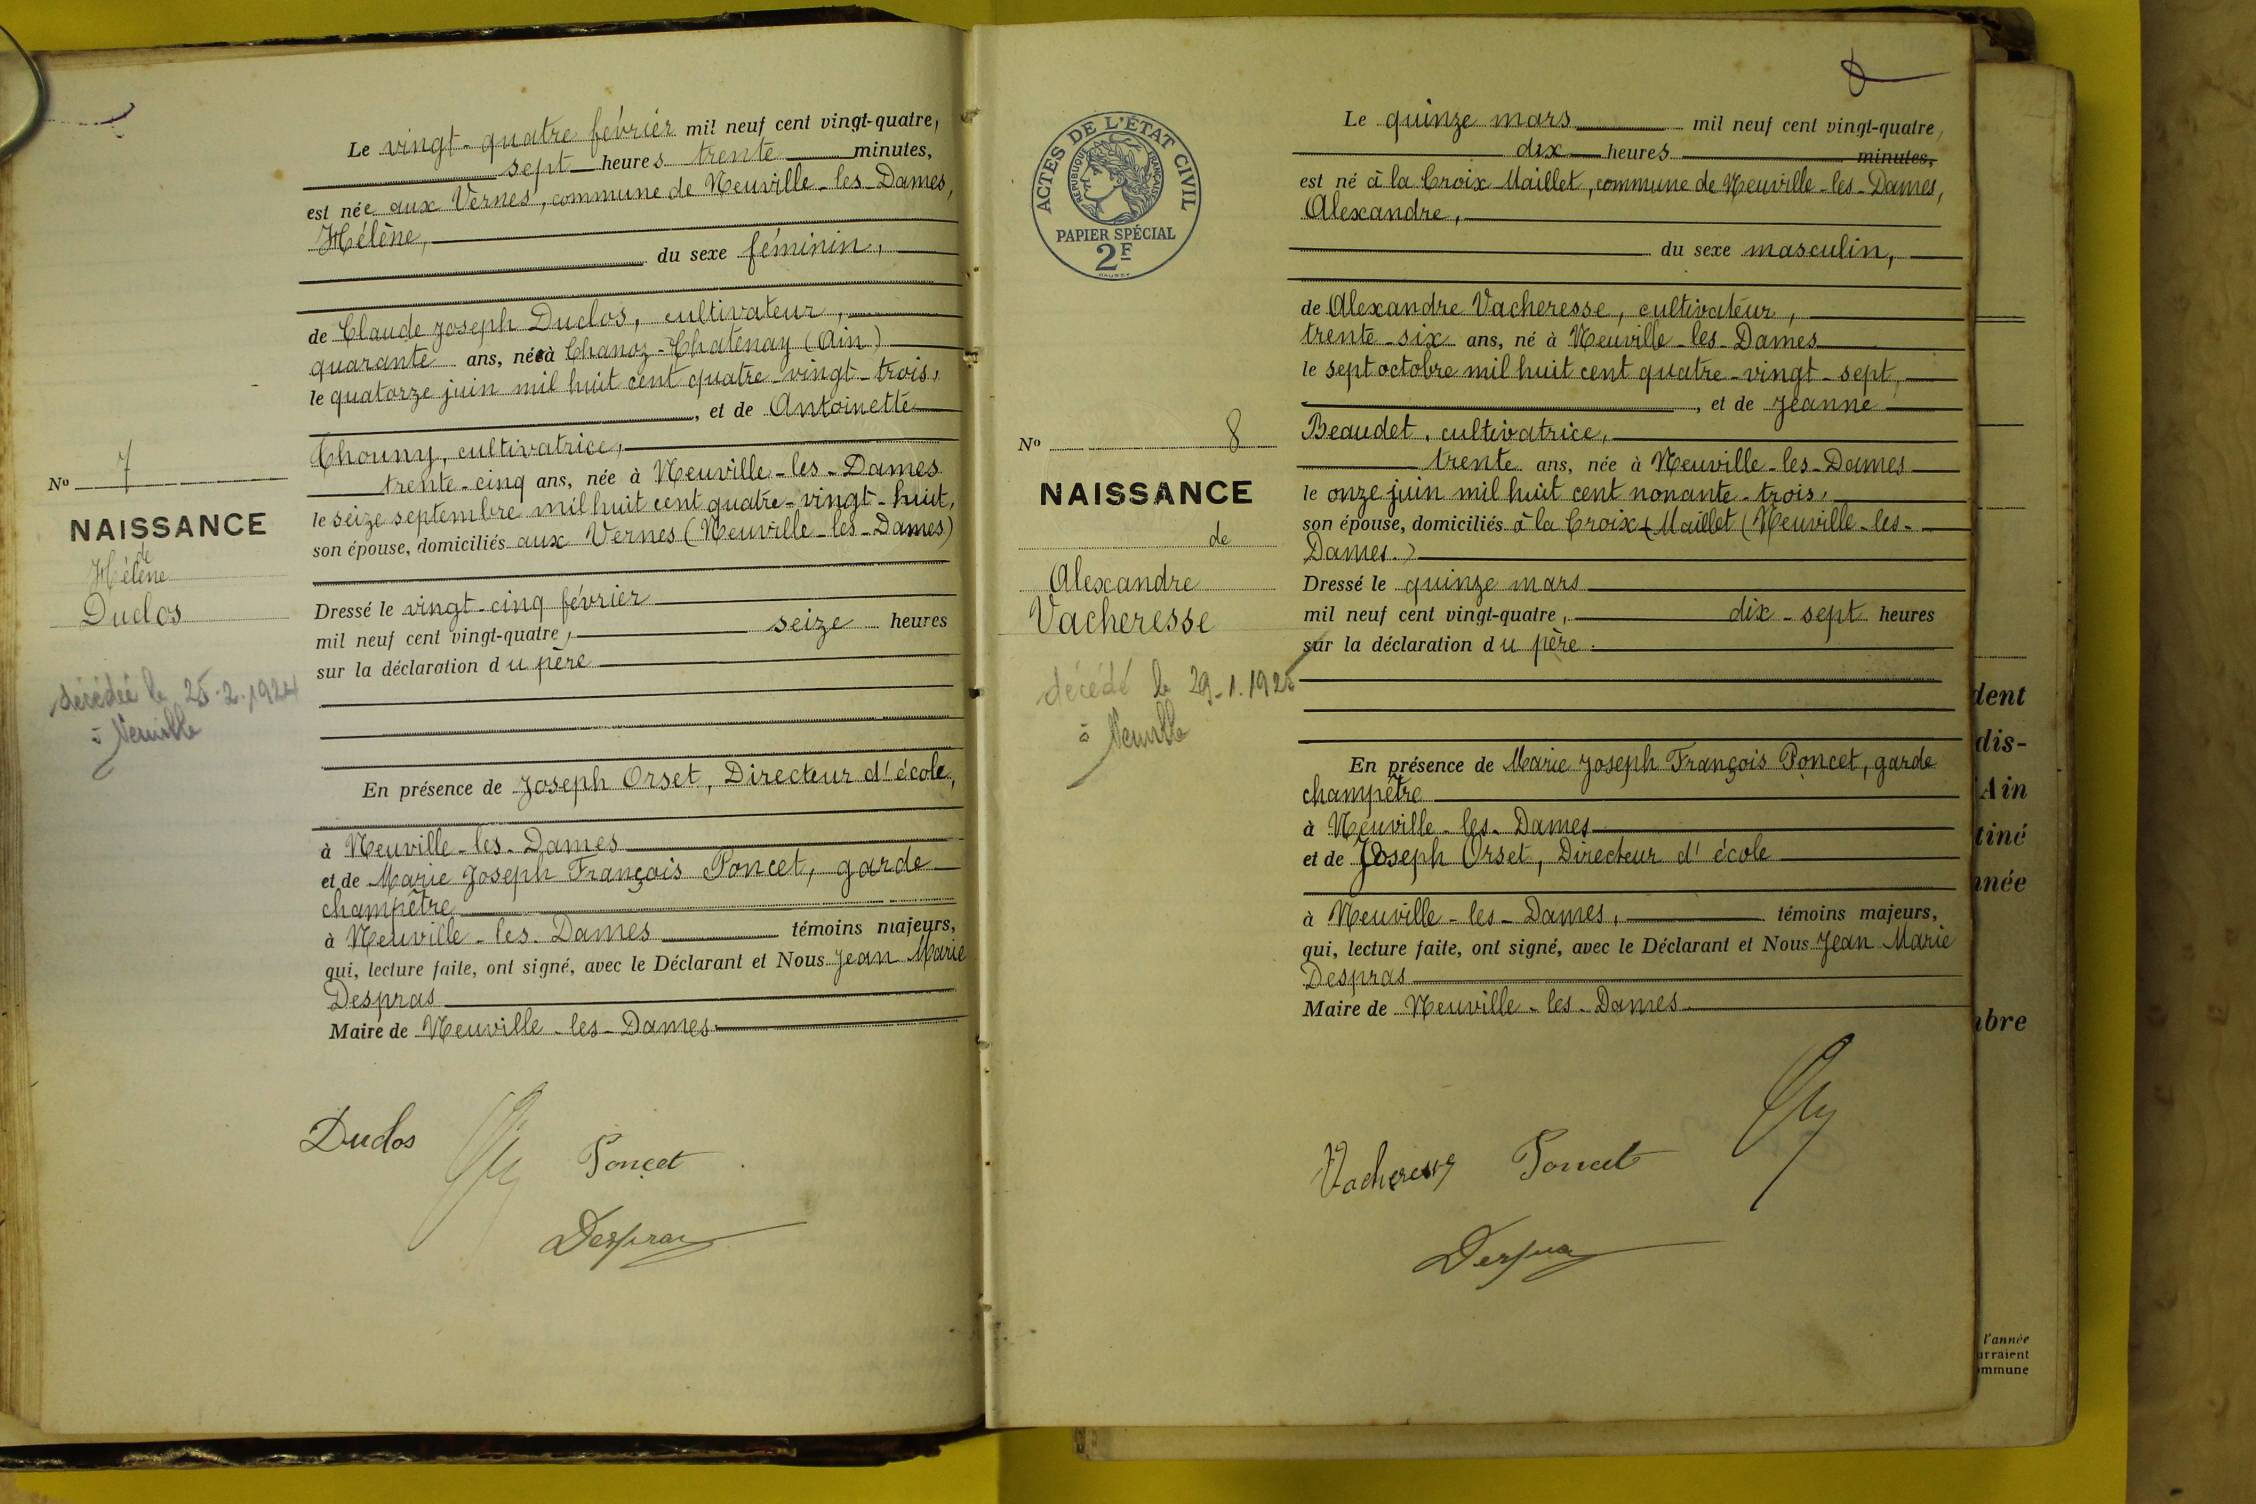 Le vingt-quatre février mil neuf cent vingt-quatre,
sept heures trente minutes,
est née aux Vernes, commune de Neuville-les-Dames,
Hélène,
du sexe féminin,
de Claude Joseph Duclos, cultivateur,
quarante ans, né à Chanoz-Chatenay (Ain)
le quatorze juin mil huit cent quatre-vingt-trois,
, et de Antoinette
Chouny, cultivatrice,
trente-cinq ans, née à Neuville-les-Dames
le seize septembre mil huit cent quatre-vingt-huit,
son épouse, domiciliés aux Vernes (Neuville-les-Dames)
Dressé le vingt-cinq février
mil neuf cent vingt-quatre, seize heures
sur la déclaration du père
En présence de Joseph Orset, Directeur d'école,
à Neuville-les-Dames
et de Marie Joseph François Poncet, garde
champêtre
à Neuville-les-Dames témoins majeurs,
qui, lecture faite, ont signé, avec le Déclarant et Nous Jean Marie
Despras
Maire de Neuville-les-Dames
No 7
NAISSANCE
de
Hélène
Duclos
décédée le 25.2.1924
à Neuville
Duclos
Poncet
Despras
ACTES DE L'ÉTAT CIVIL
RÉPUBLIQUE FRANÇAISE
PAPIER SPÉCIAL
2F
No 8
NAISSANCE
de
Alexandre
Vacheresse
décédé le 29.1.1925
à Neuville
Le quinze mars mil neuf cent vingt-quatre,
dix heures minutes,
est né à la Croix Maillet, commune de Neuville-les-Dames,
Alexandre,
du sexe masculin,
de Alexandre Vacheresse, cultivateur,
trente-six ans, né à Neuville-les-Dames
le sept octobre mil huit cent quatre-vingt-sept,
, et de Jeanne
Beaudet, cultivatrice,
trente ans, née à Neuville-les-Dames
le onze juin mil huit cent nonante-trois,
son épouse, domiciliés à la Croix Maillet (Neuville-les-
Dames.)
Dressé le quinze mars
mil neuf cent vingt-quatre, dix-sept heures
sur la déclaration du père.
En présence de Marie Joseph François Poncet, garde
champêtre
à Neuville-les-Dames
et de Joseph Orset, Directeur d'école
à Neuville-les-Dames, témoins majeurs,
qui, lecture faite, ont signé, avec le Déclarant et Nous Jean Marie
Despras
Maire de Neuville-les-Dames
Vacheresse
Poncet
Despras
dent
dis-
Ain
tiné
nnée
mbre
l'année
urraient
ommune